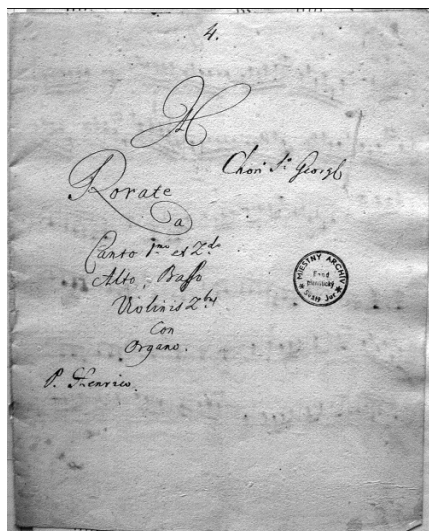 4.
Chori Sti Georgi
Rorate
a
Canto 1mo et 2do
Alto, Basso
Violinis 2bus
Con
Organo.
P. Henrico.
MIESTNY ARCHÍV
Fond
Svätý Jur